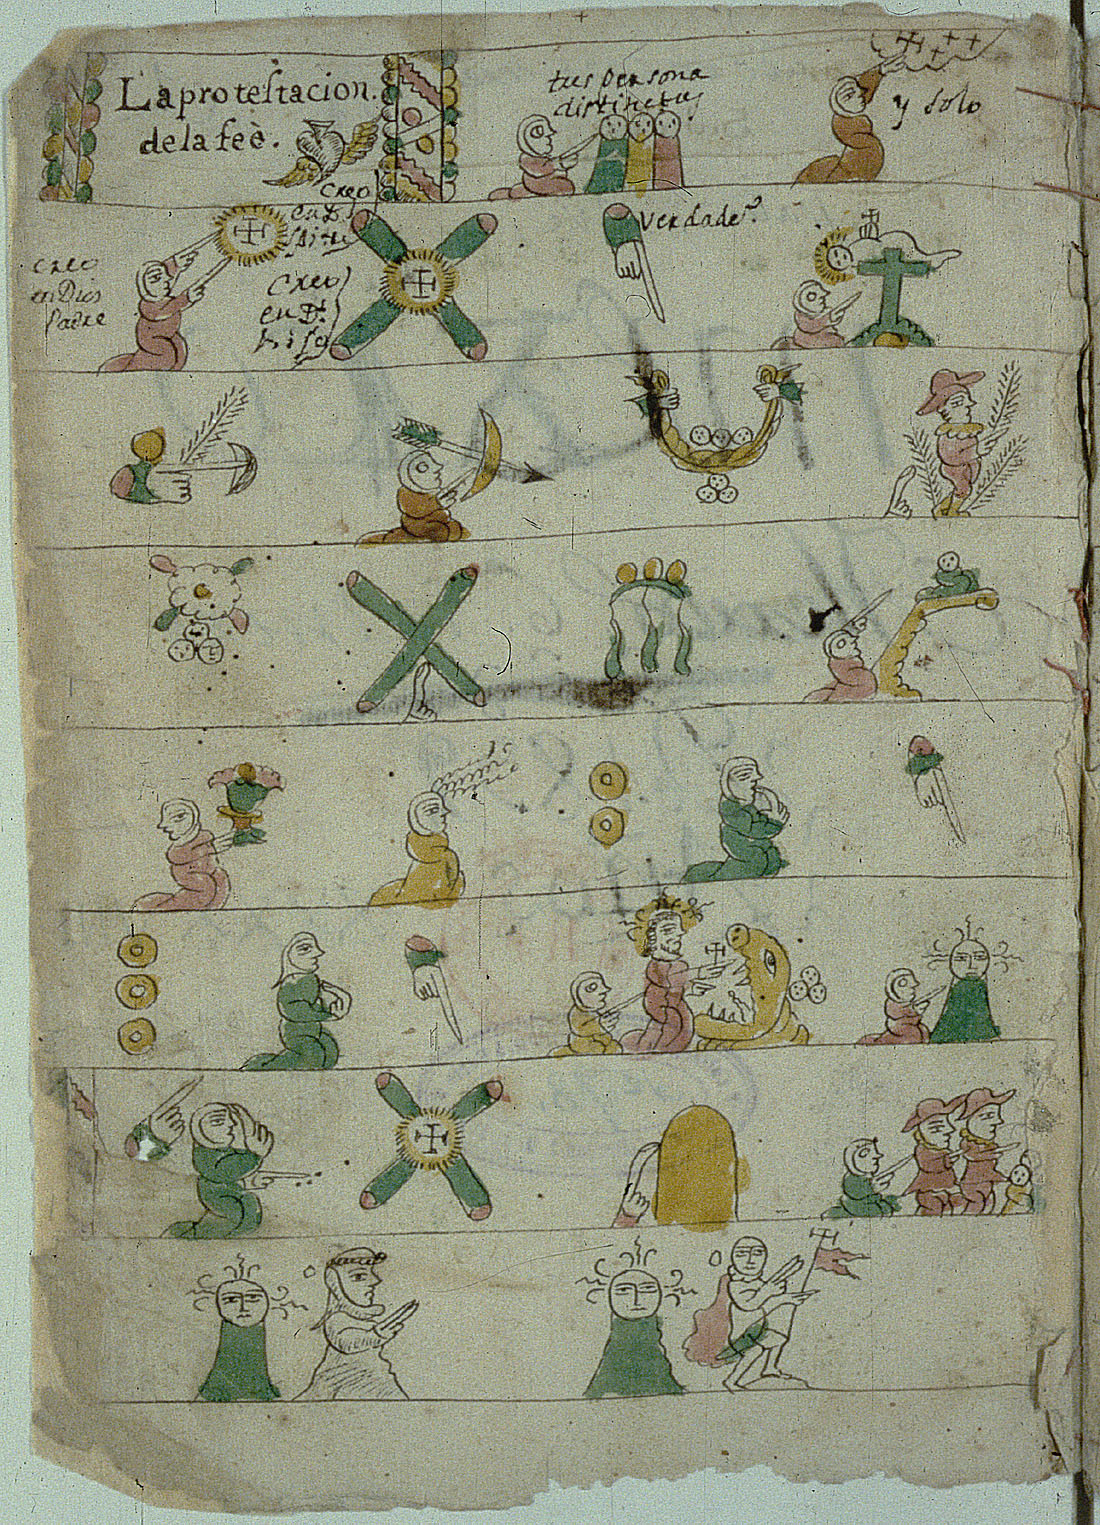 La protestacion.
de la feè.
tres persona
distinctas
y solo
creo
en Dios
Padre
Creo
en
Creo
en D.s
hijo
Verdade.º